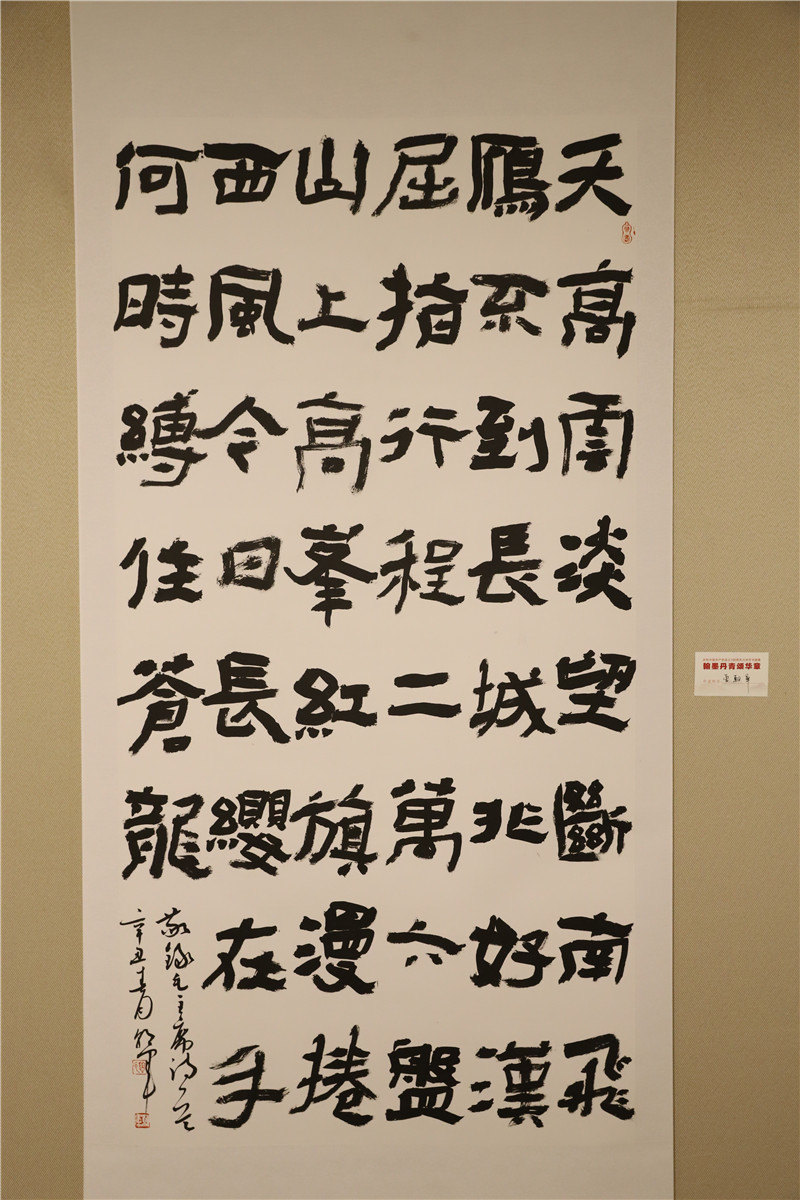 天高雲淡望斷南飛
鴈不到長城非好漢
屈指行程二萬六盤
山上高峯紅旗漫捲
西風今日長纓在手
何時縛住蒼龍
敬錄毛主席詩一首
辛丑春月
翰墨丹青颂华章